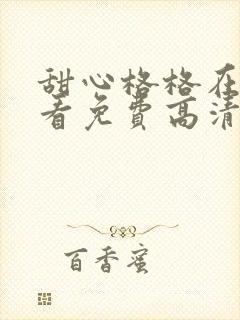 甜心格格在
看免费高清
百香蜜